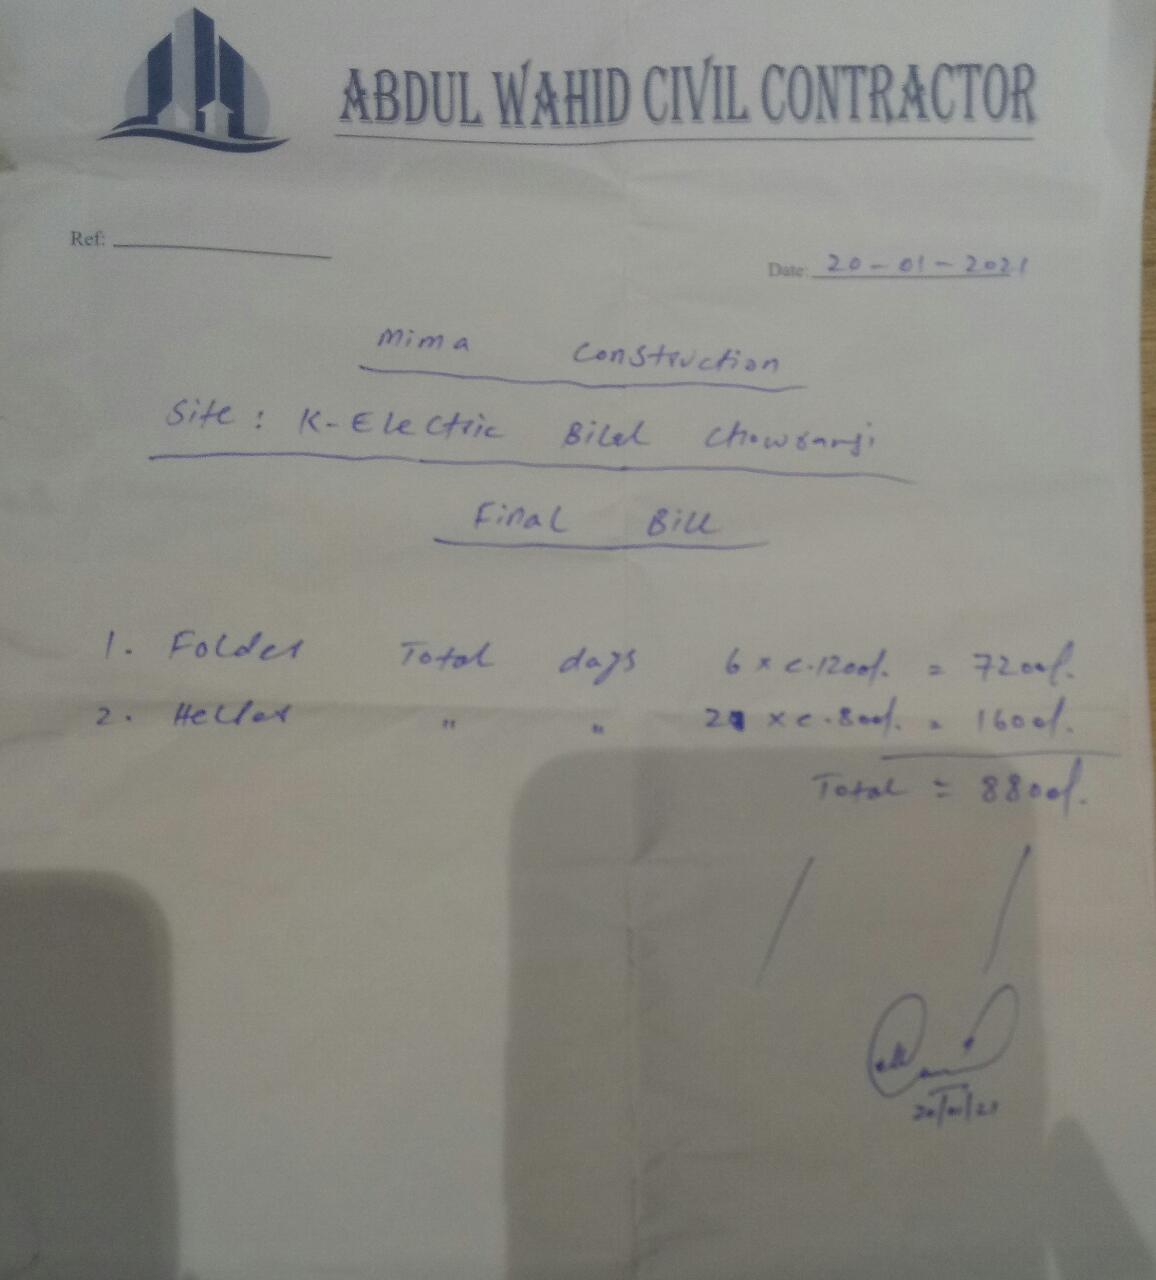 ABDUL WAHID CIVIL CONTRACTOR
Ref:
Date: 20-01-2021
Mima Construction
Site: K-Electric Bilal Chowrangi
Final Bill
1. Folder Total days 6 x c.1200/. = 7200/.
2. Helfar " " 2 x c.800/. = 1600/.
Total = 8800/.
20/01/21